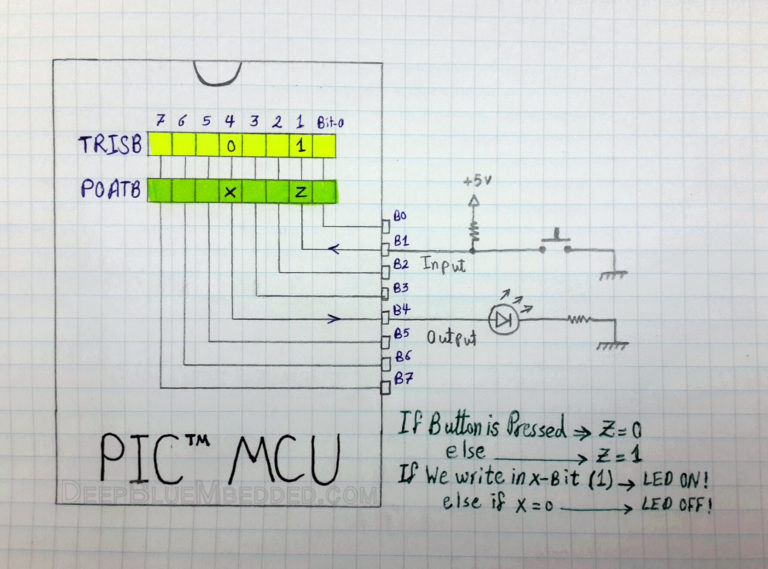 7 6 5 4 3 2 1 Bit-0
TRISB 0 1
POATB X Z
+5V
B0
B1
Input
B2
B3
B4
Output
B5
B6
B7
PIC™ MCU
DeepBlueMbedded.com
If Button is Pressed → Z=0
else → Z=1
If We write in X-Bit (1) → LED ON!
else if X=0 → LED OFF!